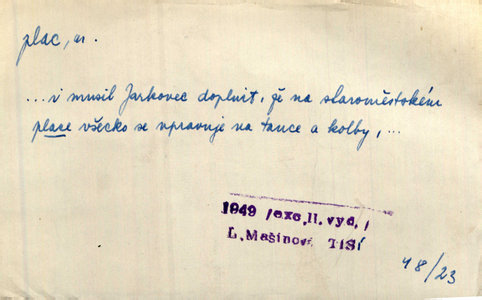 plac, m.
... i musil Jarkovec doplnit, že na staroměstském
place všecko se upravuje na tance a kolby, ...
1949 /exc. II. vyd./
L. Mašínová TISÍ
48/23